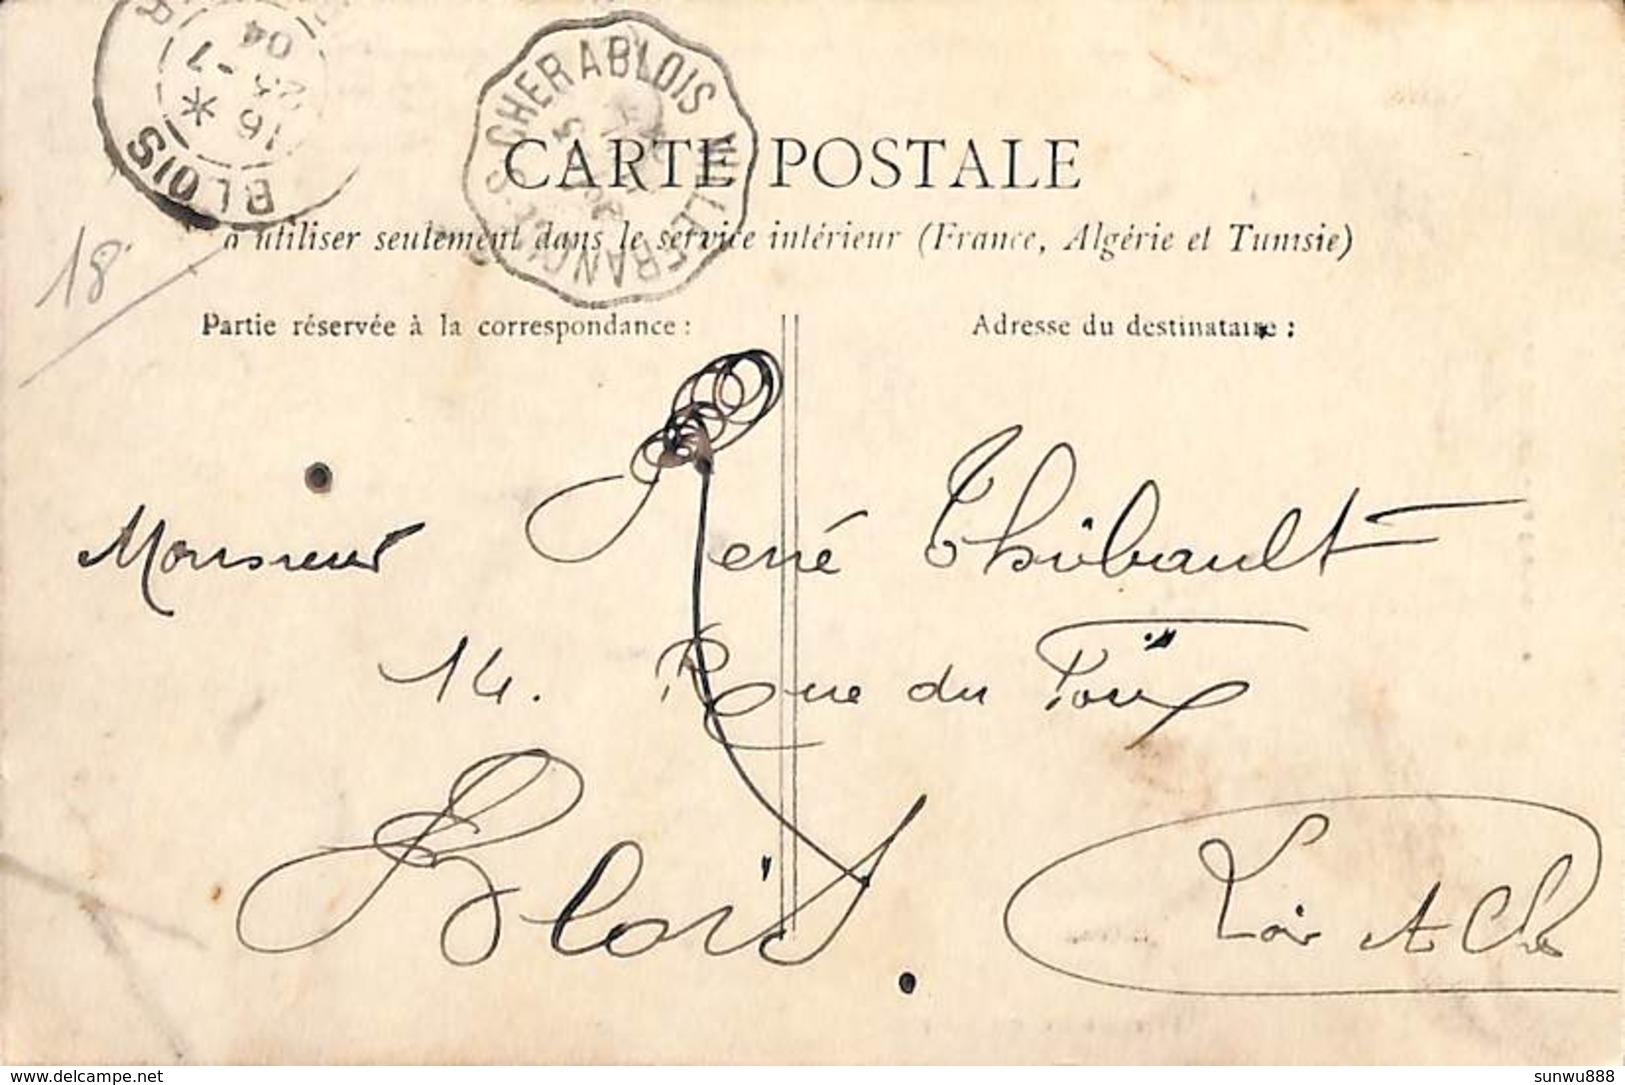 BLOIS
15
23-7
04
VILLEFRANCHE-S-CHER A BLOIS
18
CARTE POSTALE
à utiliser seulement dans le service intérieur (France, Algérie et Tunisie)
Partie réservée à la correspondance :
Adresse du destinataire :
Monsieur René Thibault
14. Rue du Foix
Blois.
Loir et Cher
delcampe.net
sunwu888